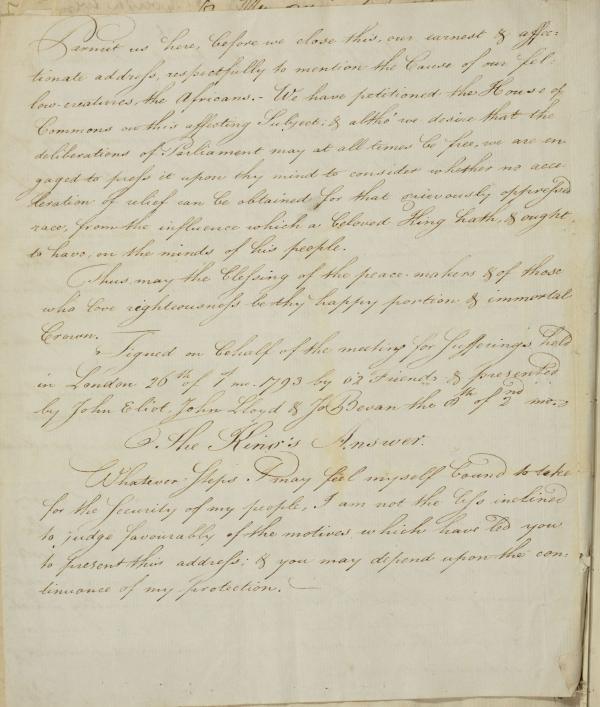 Permit us here, before we close this, our earnest & affec-
tionate address, respectfully to mention the Cause of our fel-
low-creatures, the Africans. - We have petitioned the House of
Commons on this affecting Subject; & altho' we desire that the
deliberations of Parliament may at all times be free, we are en-
gaged to press it upon thy mind to consider whether no acce-
leration of relief can be obtained for that grievously oppressed
race, from the influence which a beloved King hath, & ought
to have, on the minds of his people.
Thus, may the blessing of the peace-makers & of those
who love righteousness be thy happy portion & immortal
Crown.
Signed on behalf of the meeting for Sufferings held
in London 26th of 1 mo. 1793 by 62 Friends & presented
by John Eliot, John Lloyd & Jo. Bevan the 8th of 2nd mo.
The King's Answer.
Whatever steps I may feel myself bound to take
for the security of my people, I am not the less inclined
to judge favourably of the motives which have led you
to present this address; & you may depend upon the con-
tinuance of my protection.